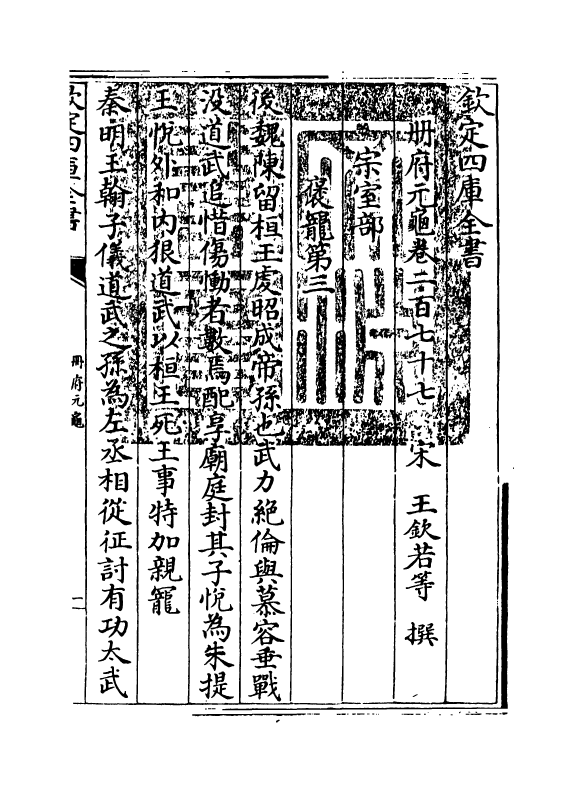 欽定四庫全書
冊府元龜卷二百七十七　宋　王欽若等　撰
宗室部
褒寵第三
後魏陳留桓王虔昭成帝孫也武力絶倫與慕容垂戰
没道武追惜傷慟者數焉配享廟庭封其子悅為朱提
王悅外和内狠道武以桓王死王事特加親寵
秦明王翰子儀道武之孫為左丞相從征討有功太武
欽定四庫全書
冊府元龜
二